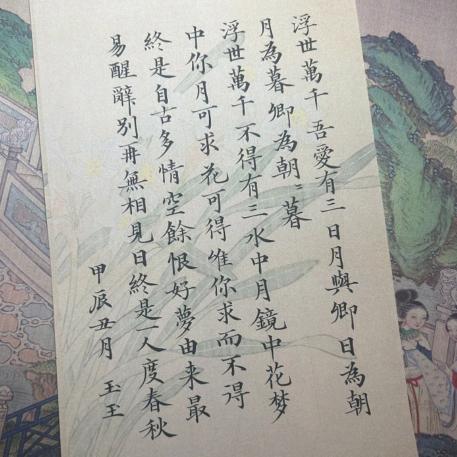 浮世萬千吾愛有三日月與卿日為朝
月為暮卿為朝〻暮
浮世萬千不得有三水中月鏡中花梦
中你月可求花可得惟你求而不得
終是自古多情空餘恨好夢由来最
易醒辭別再無相見日終是一人度春秋
甲辰丑月 玉王